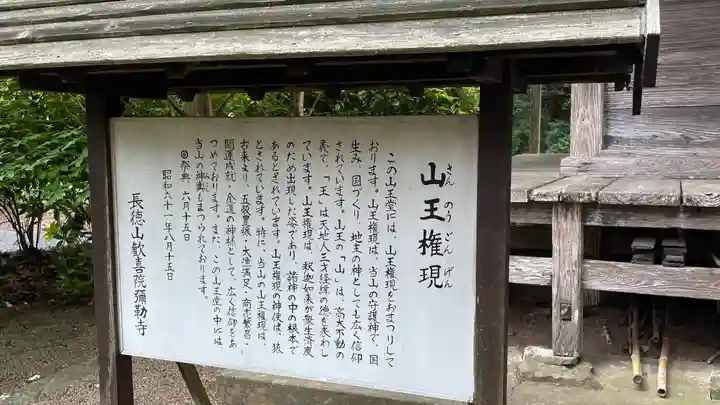 山王権現
さんのうごんげん
この山王堂には、山王権現をおまつりして
おります。山王権現は、当山の守護神で、国
生み、国づくり、地主の神としても広く信仰
されています。山王の「山」は、高大不動の
義で、「王」は天地人三才経緯の徳を表わし
ています。山王権現は、釈迦如来が衆生済度
のため出現した姿であり、諸神の中の根本で
あるとされています。山王権現の神使は、猿
とされています。特に、当山の山王権現は、
古来より、五穀豊穣・大漁満足・商売繁昌・
開運成就・金運の神様として、広く信仰をあ
つめております。また、この山王堂の中には
当山の神輿もまつられております。
◎祭典 六月十五日
昭和六十一年八月十五日
長徳山歓喜院彌勒寺